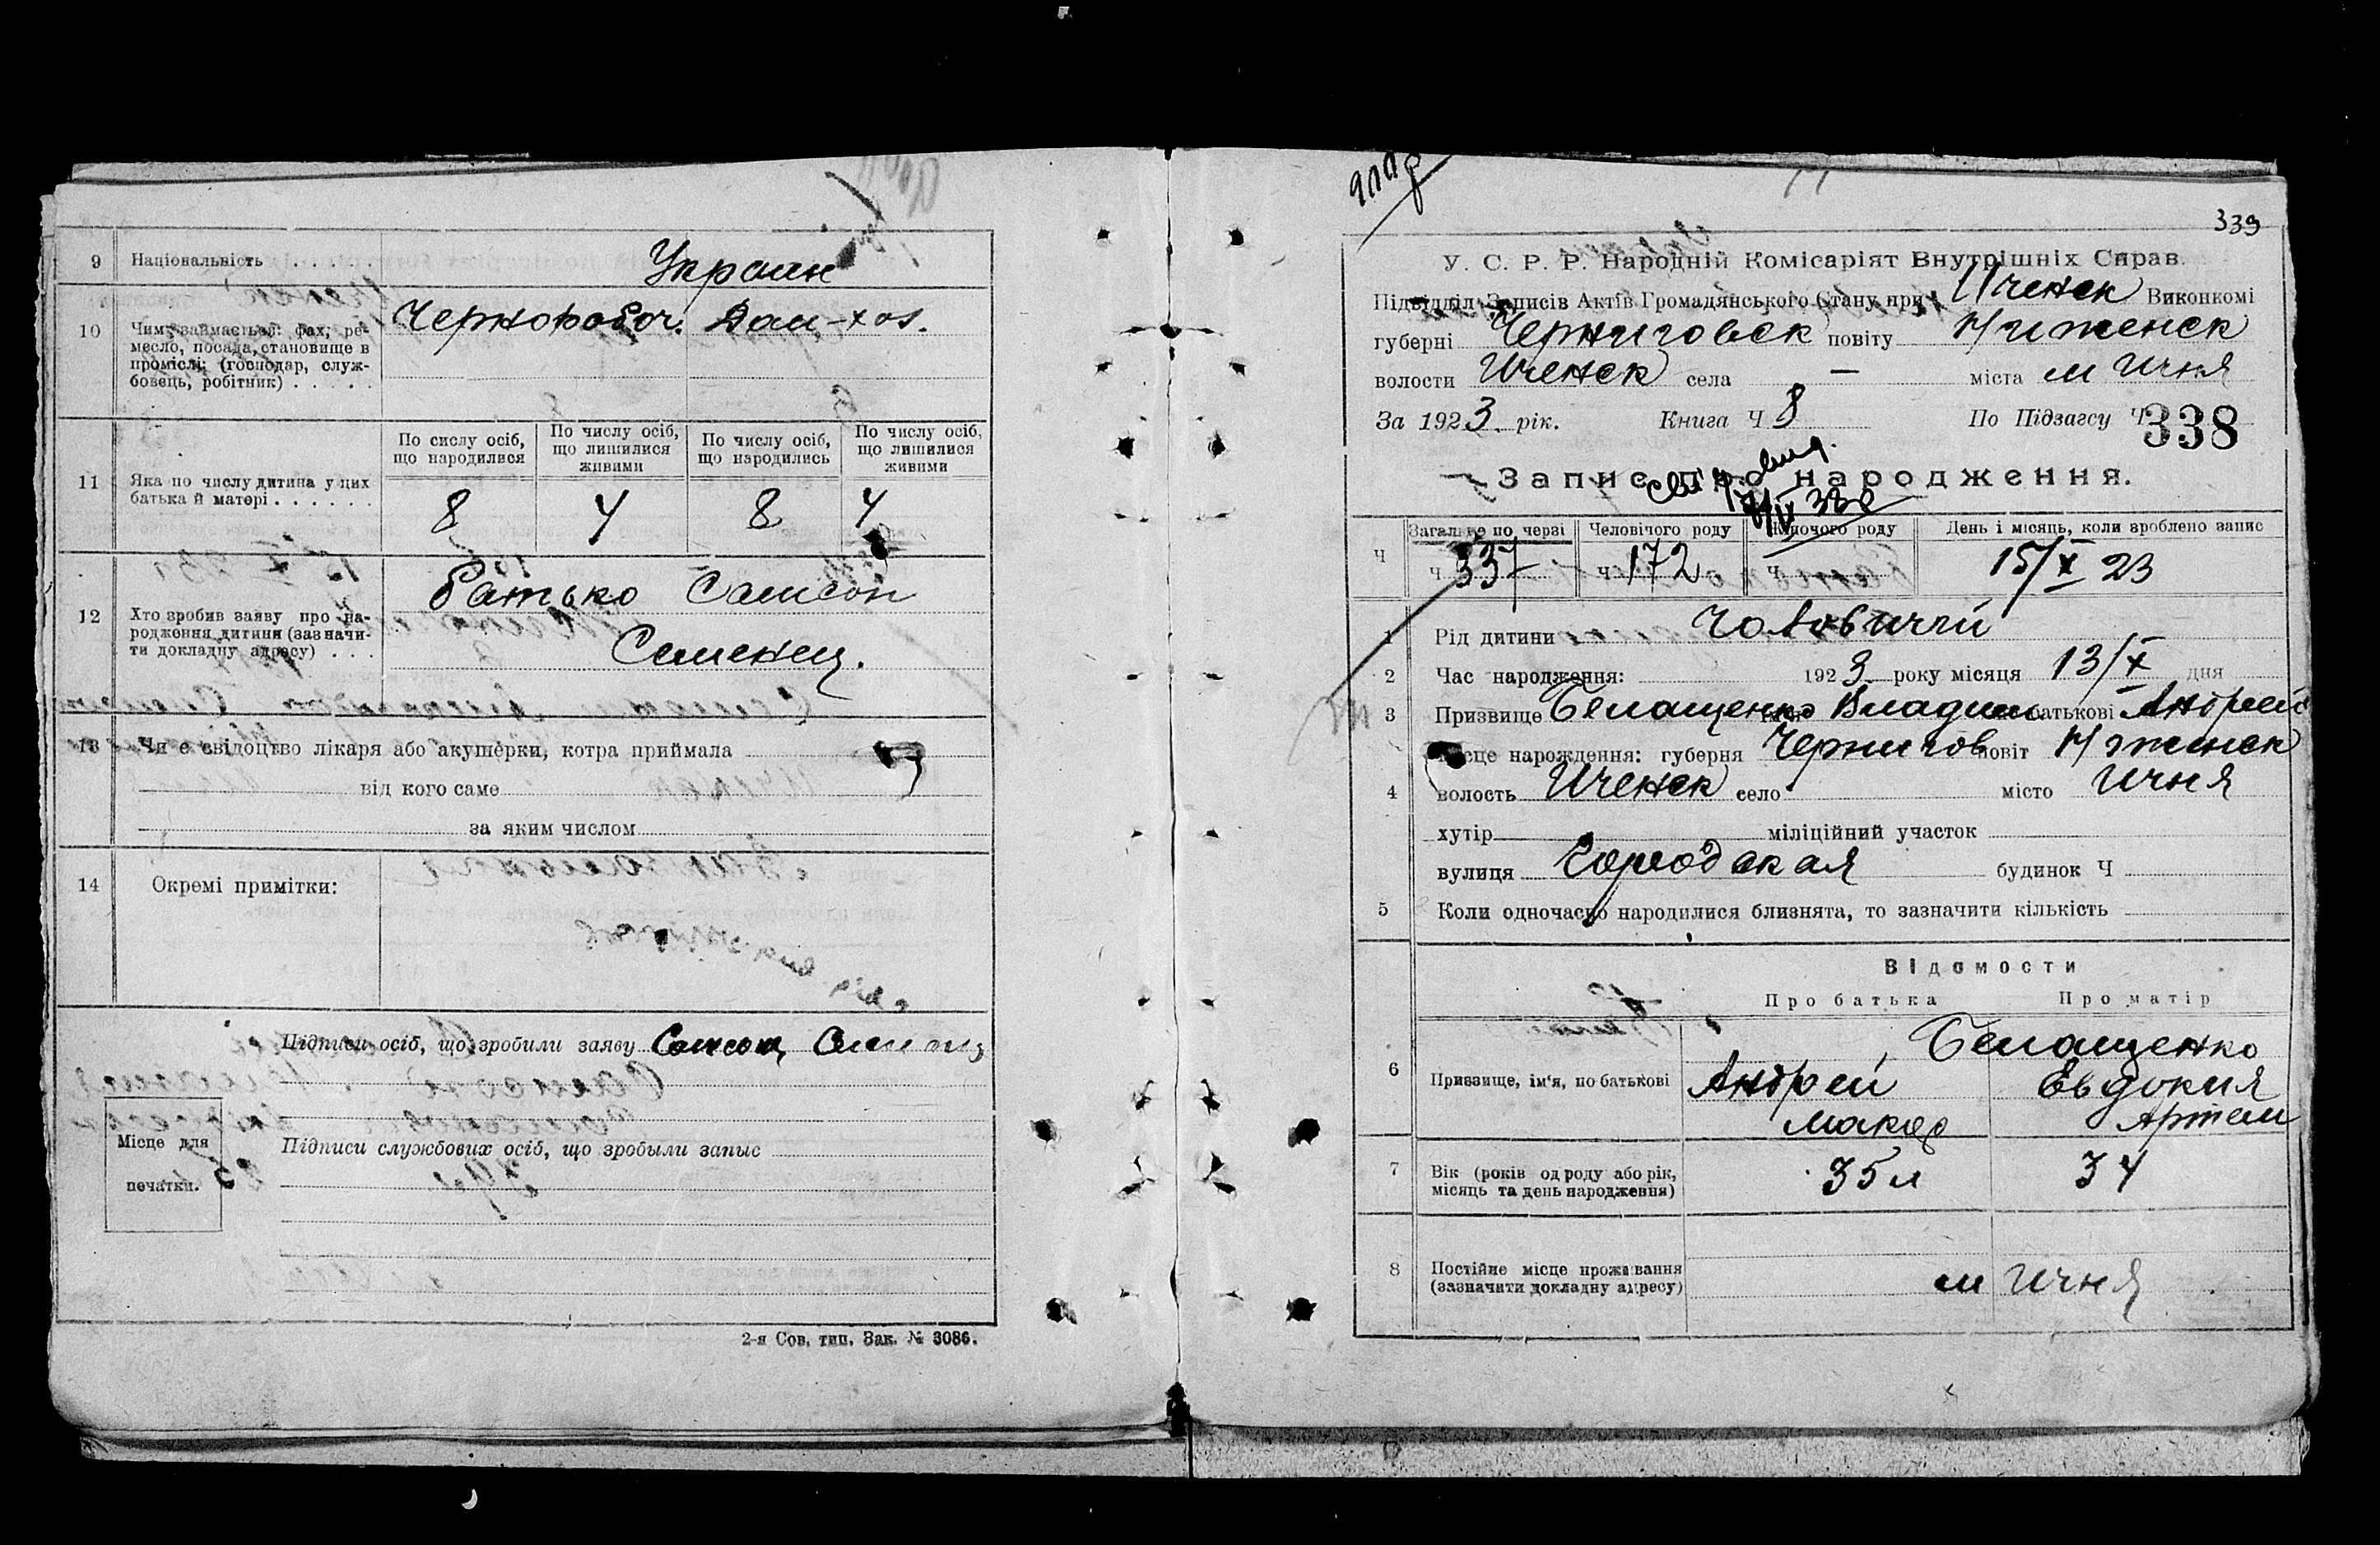 9 Національність Украин
10 Чим займається: фах, ре-
месло, посада, становище в
промислі: (господар, служ-
бовець, робітник)
Чернорабоч. Дом-хоз.
По числу осіб, що народилися
По числу осіб, що лишилися живими
По числу осіб, що народились
По числу осіб, що лишилися живими
11 Яка по числу дитина у цих
батька й матері
8 4 8 4
12 Хто зробив заяву про на-
родження дитини (зазначи-
ти докладну адресу)
Батько Самсон
Семенец.
13 Чи є свідоцтво лікаря або акушерки, котра приймала
від кого саме
за яким числом
14 Окремі примітки:
Підписи осіб, що зробили заяву Самсон
Місце для
печатки.
Підписи службових осіб, що зробыли запыс
2-я Сов. тип. Зак. № 3086.
339
У. С. Р. Р. Народній Комісаріят Внутрішніх Справ.
Підвідділ Записів Актів Громадянського Стану при Иченск Виконкомі
губерні Черниговск повіту Ниженск
волости Иченск села — міста м Ичня
За 1923 рік. Книга Ч 8 По Підзагсу Ч 338
Запис про народження.
Загальне по черзі Человічого роду Жіночого роду День і місяць, коли зроблено запис
Ч Ч 337 Ч 172 Ч 15/X 23
1 Рід дитини Чоловичий
2 Час народження: 1923 року місяця 13/X дня
3 Призвище Белащенко Владим. батькові Андрей
Місце народження: губерня Чернигов повіт Нженск
4 волость Иченск село місто Ичня
хутір міліційний участок
вулиця Городская будинок Ч
5 Коли одночасно народилися близнята, то зазначити кількість
Відомости
Про батька Про матір
6 Призвище, ім'я, по батькові
Белащенко
Андрей Евдокия
Макар Артем
7 Вік (років од роду або рік,
місяць та день народження)
35 л 34
8 Постійне місце проживання
(зазначити докладну адресу)
м Ичня